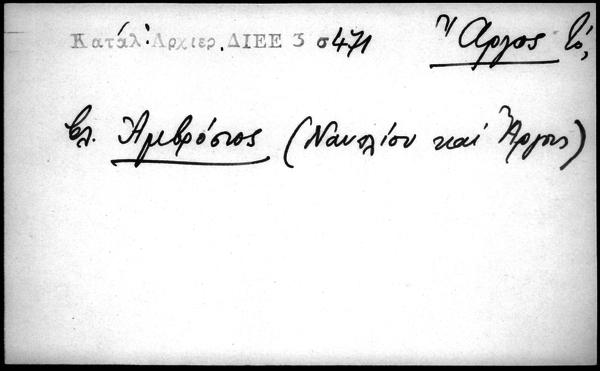 Κατάλ. Ἀρχιερ. ΔΙΕΕ 3 σ 471 Ἄργος τό,
βλ. Ἀμβρόσιος (Ναυπλίου καὶ Ἄργους)